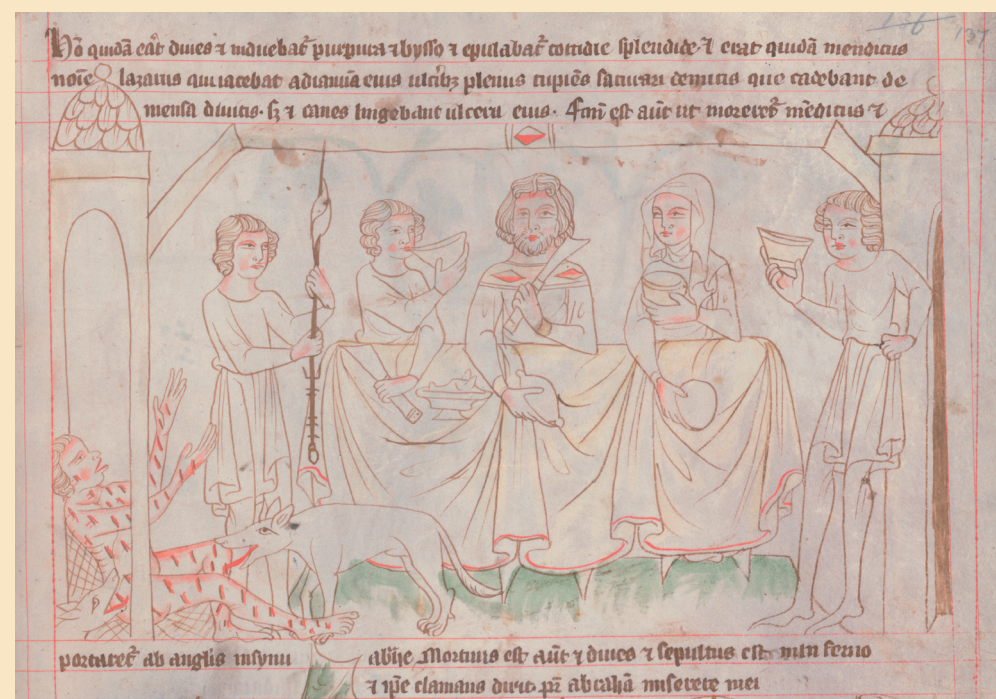 Hō quidā erat diues ⁊ induebat᷑ purpura ⁊ bysso ⁊ epulabat᷑ cottidie splendide ⁊ erat quidā mendicus
noīe lazarus qui iacebat ad ianuā eius ulcībꝫ plenus cupiēs saturari de micis que cadebant de
mensa diuitis · sꝫ ⁊ canes lingebant ulcera eius · fcm̄ est aūt ut moreret᷑ mēdicus ⁊
portaret᷑ ab anglis in synu abrhe Mortuus est aūt ⁊ diues ⁊ sepultus est in inferno
⁊ ip̄e clamans dixit pr̄ abrahā miserere mei
137